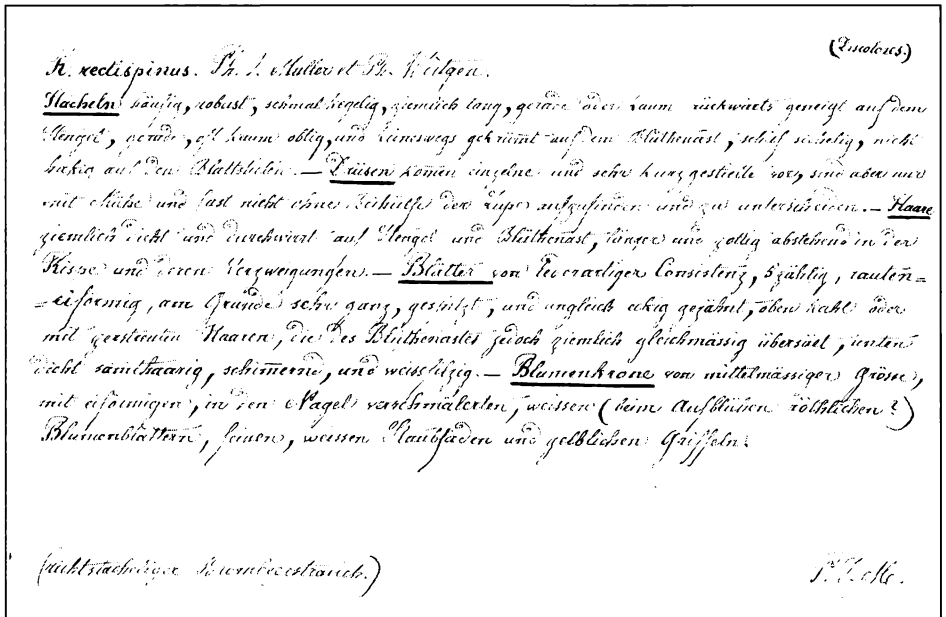 (Discolores.)
R. rectispinus. Ph. J. Müller et Ph. Wirtgen.
Stacheln häufig, robust, schmal kegelig, ziemlich lang, gerade oder kaum rückwärts geneigt auf dem
Stengel, gerade, oft kaum oblig, und keineswegs gekrümt auf dem Blüthenast, schief sichelig, nicht
hakig auf den Blattstielen. — Drüsen komen einzelne und sehr kurz gestielte vor, sind aber nur
mit Mühe und fast nicht ohne Beihülfe der Lupe aufzufinden und zu unterscheiden. — Haare
ziemlich dicht und durchwirrt auf Stengel und Blüthenast, länger und zottig abstehend in der
Rispe und deren Verzweigungen. — Blätter von lederartiger Consistenz, 5 zählig, rauten=
=eiförmig, am Grunde sehr ganz, gespitzt, und ungleich eckig gezähnt, oben kahl oder
mit zerstreuten Haaren, die des Blüthenastes jedoch ziemlich gleichmässig übersäet, unten
dicht samthaarig, schimernd, und weissfilzig. — Blumenkrone von mittelmässiger Grösse,
mit eiförmigen, in den Nagel verschmälerten, weissen (beim Aufblühen röthlichen?)
Blumenblättern, feinen, weissen Staubfäden und gelblichen Griffeln.